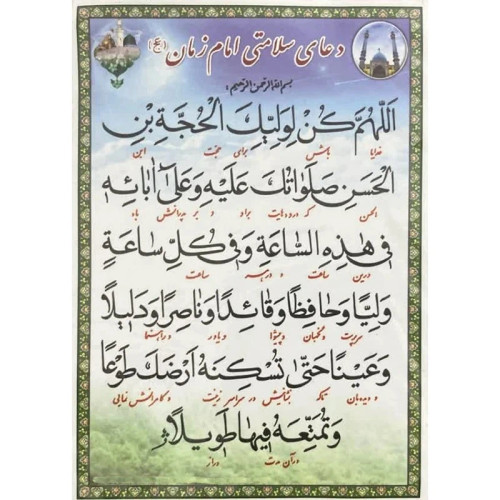 دعای سلامتی امام زمان (عج)
بسم الله الرحمن الرحیم
اَللّهُمَّ كُنْ لِوَلِيِّكَ الْحُجَّةِ بْنِ
خدایا باش برای حجت ابن
الْحَسَنِ صَلَواتُكَ عَلَيْهِ وَعَلى آبائِهِ
الحسن که درودهایت بر او و بر پدرانش باد
في هذِهِ السّاعَةِ وَفي كُلِّ ساعَةٍ
در این ساعت و در همه ساعت
وَلِيّاً وَحافِظاً وَقائِداً وَناصِراً وَدَليلاً
سرپرست و نگهبان و پیشوا و یاور و راهنما
وَعَيْناً حَتّى تُسْكِنَهُ أَرْضَكَ طَوْعاً
و دیده‌بان تا که در سراسر زمینت و کامرانش نمایی
وَتُمَتِّعَهُ فيها طَويلاً
در آن مدت دراز